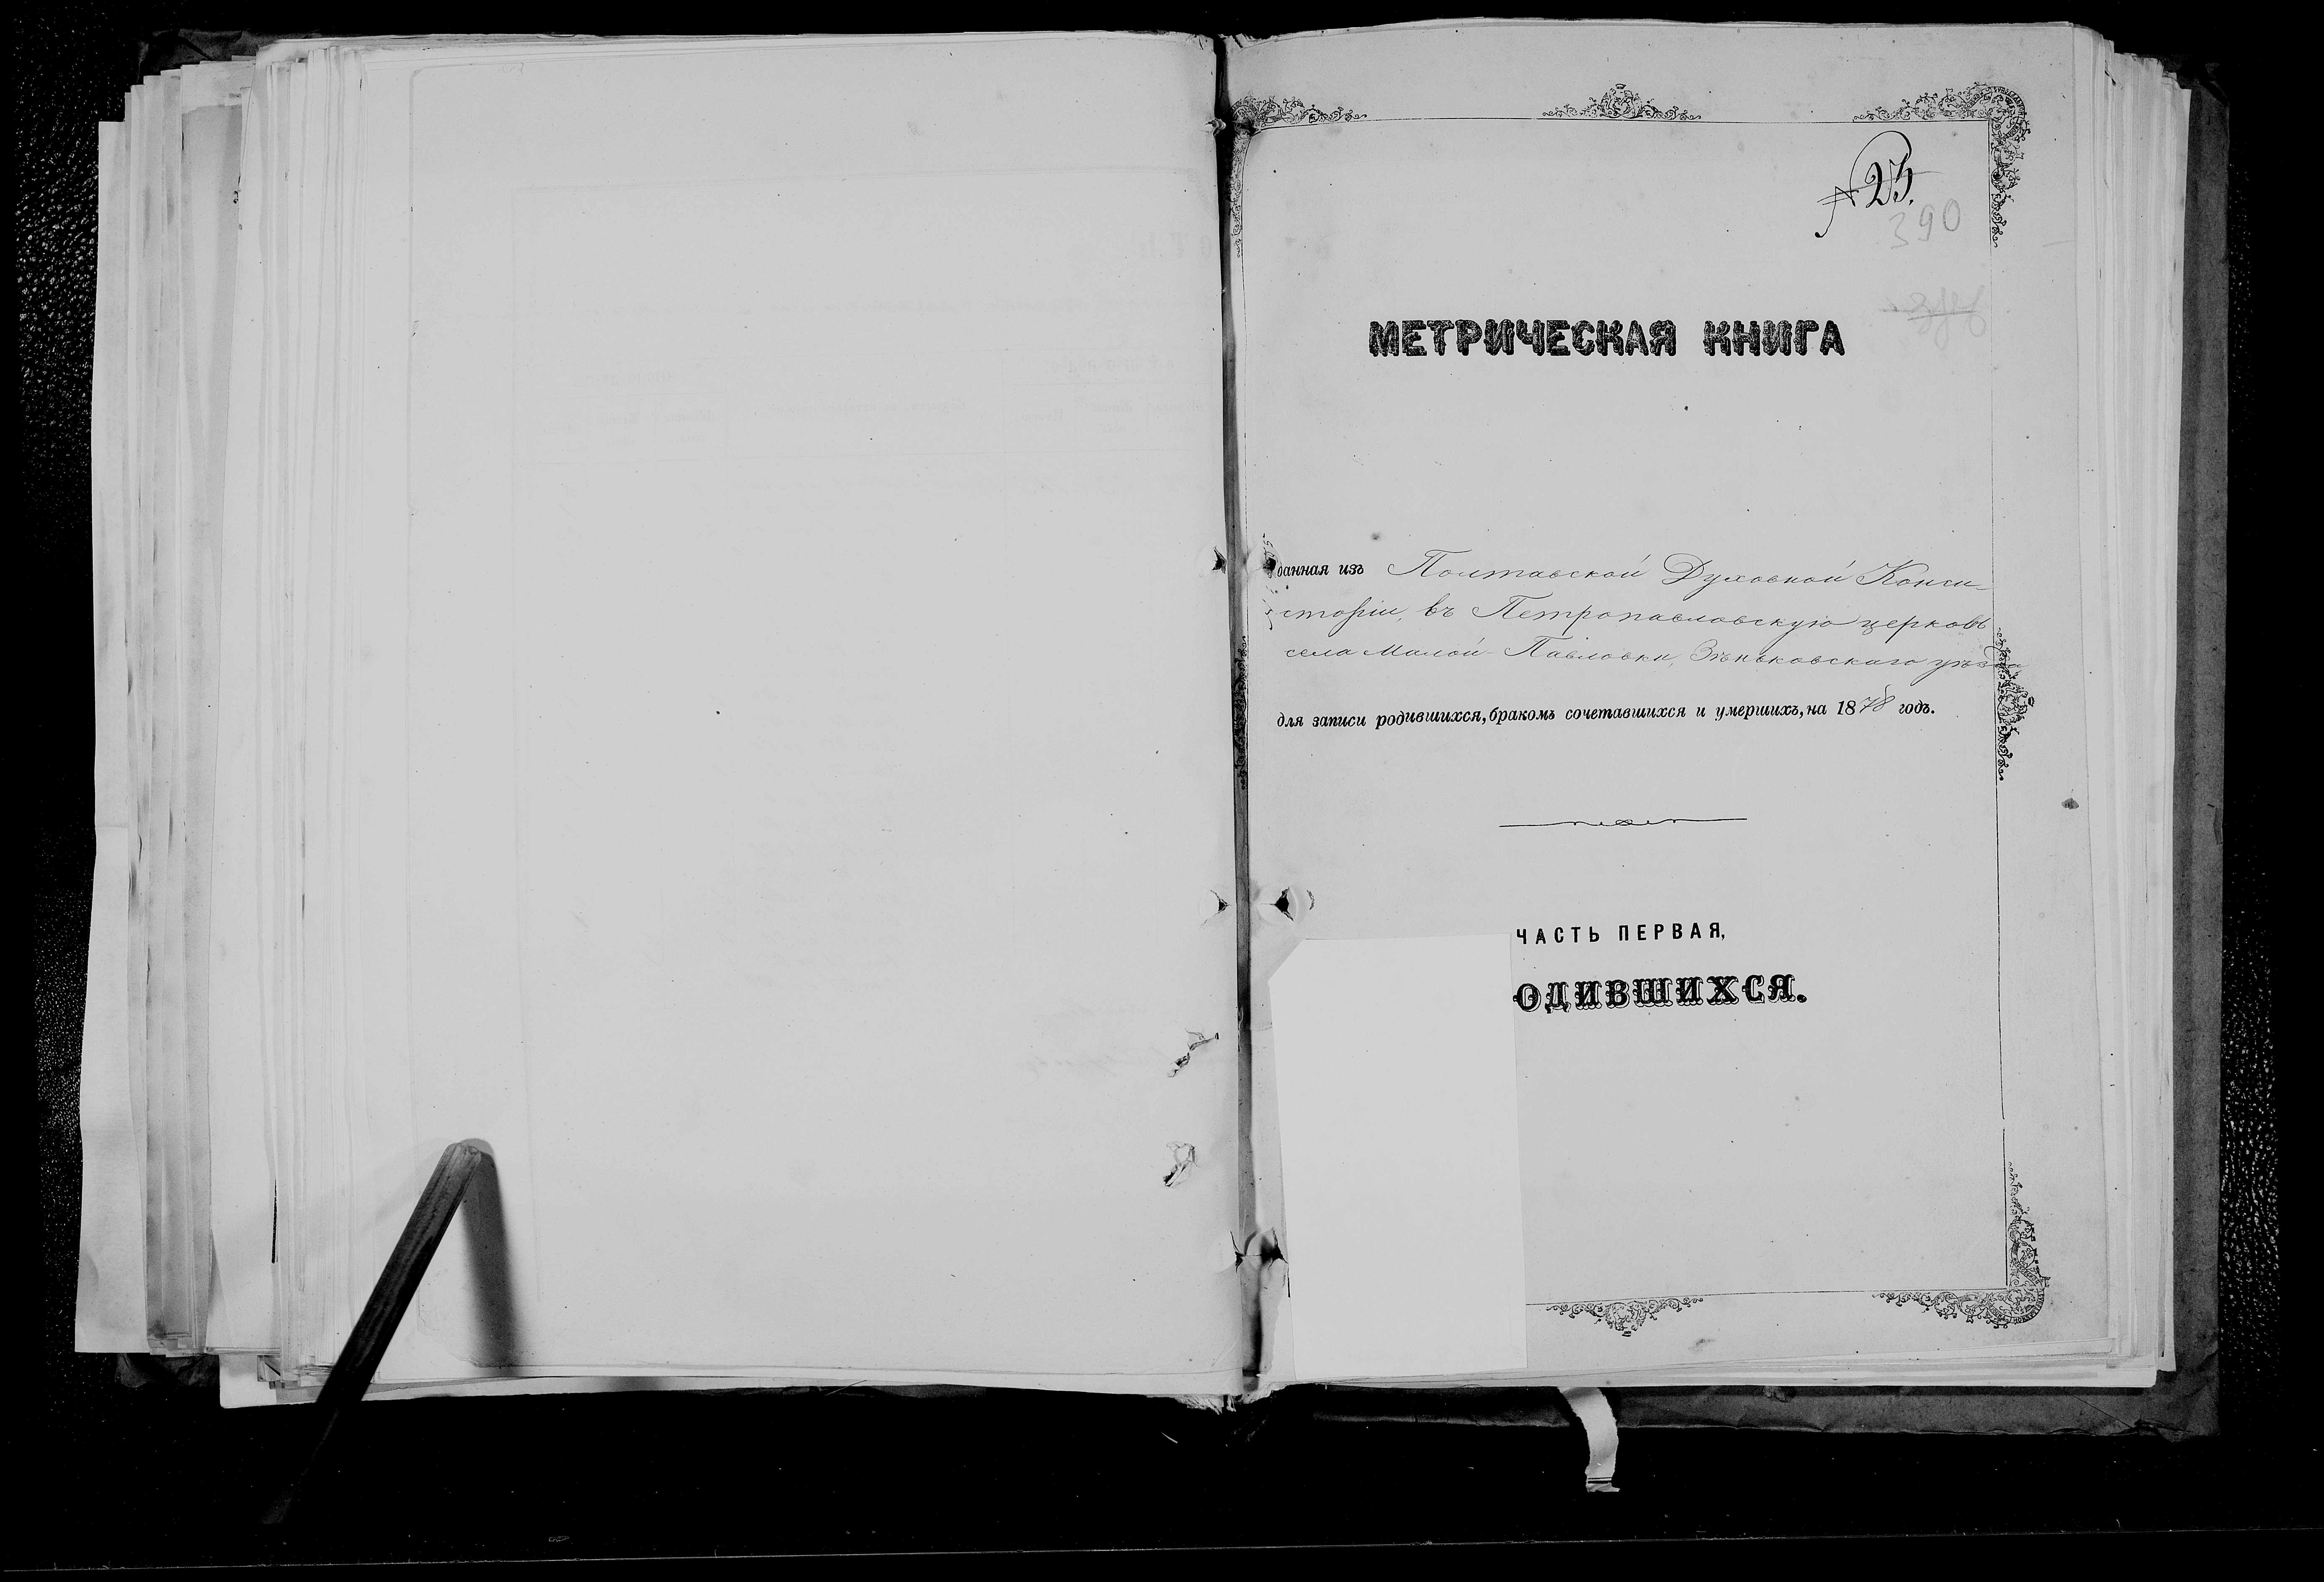 № 23.
390
МЕТРИЧЕСКАЯ КНИГА
данная изъ Полтавской Духовной Конси-
сторіи, въ Петропавловскую церковь
села Малой-Павловки, Зѣньковскаго уѣзда
для записи родившихся, бракомъ сочетавшихся и умершихъ, на 1878 годъ.
ЧАСТЬ ПЕРВАЯ,
ОДИВШИХСЯ.